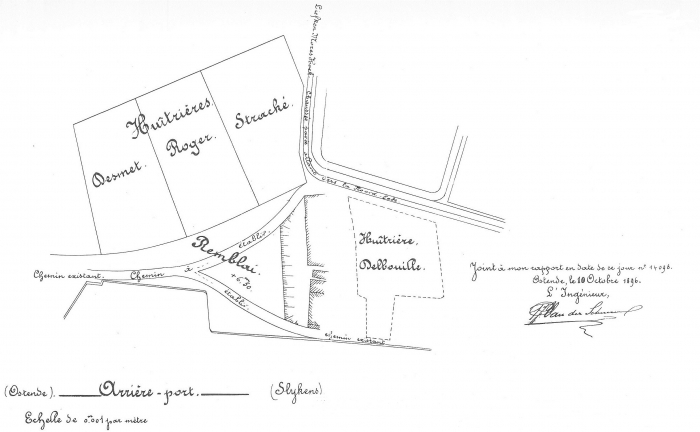 Huîtrières.
Desmet.
Roger.
Straché.
Huîtrière
Delbouille.
Remblai.
Chemin existant.
Chemin
à
établir.
établir
+6.30
chemin existant
Joint à mon rapport en date de ce jour n°
Ostende, le 10 Octobre 1896.
L'Ingénieur,
(Ostende). Arrière-port. (Slykens)
Echelle de 0.m001 par mètre